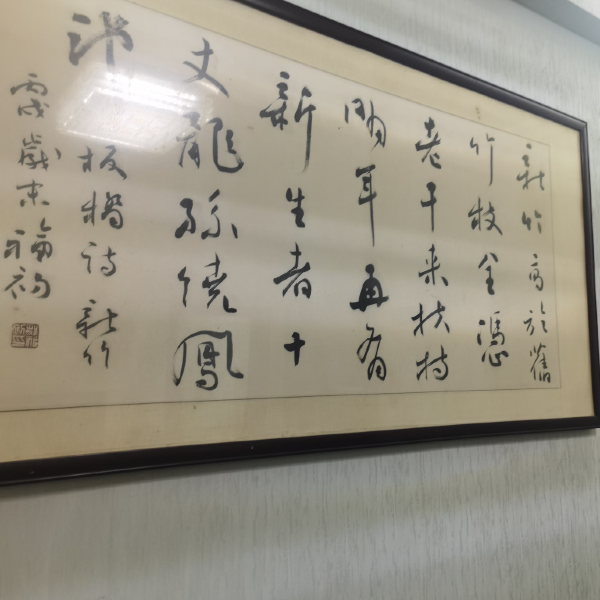 新竹高於舊
竹枝全憑
老干来扶持
明年再有
新生者十
丈龍孫繞鳳
池
板橋诗新竹
丙戌歲末福